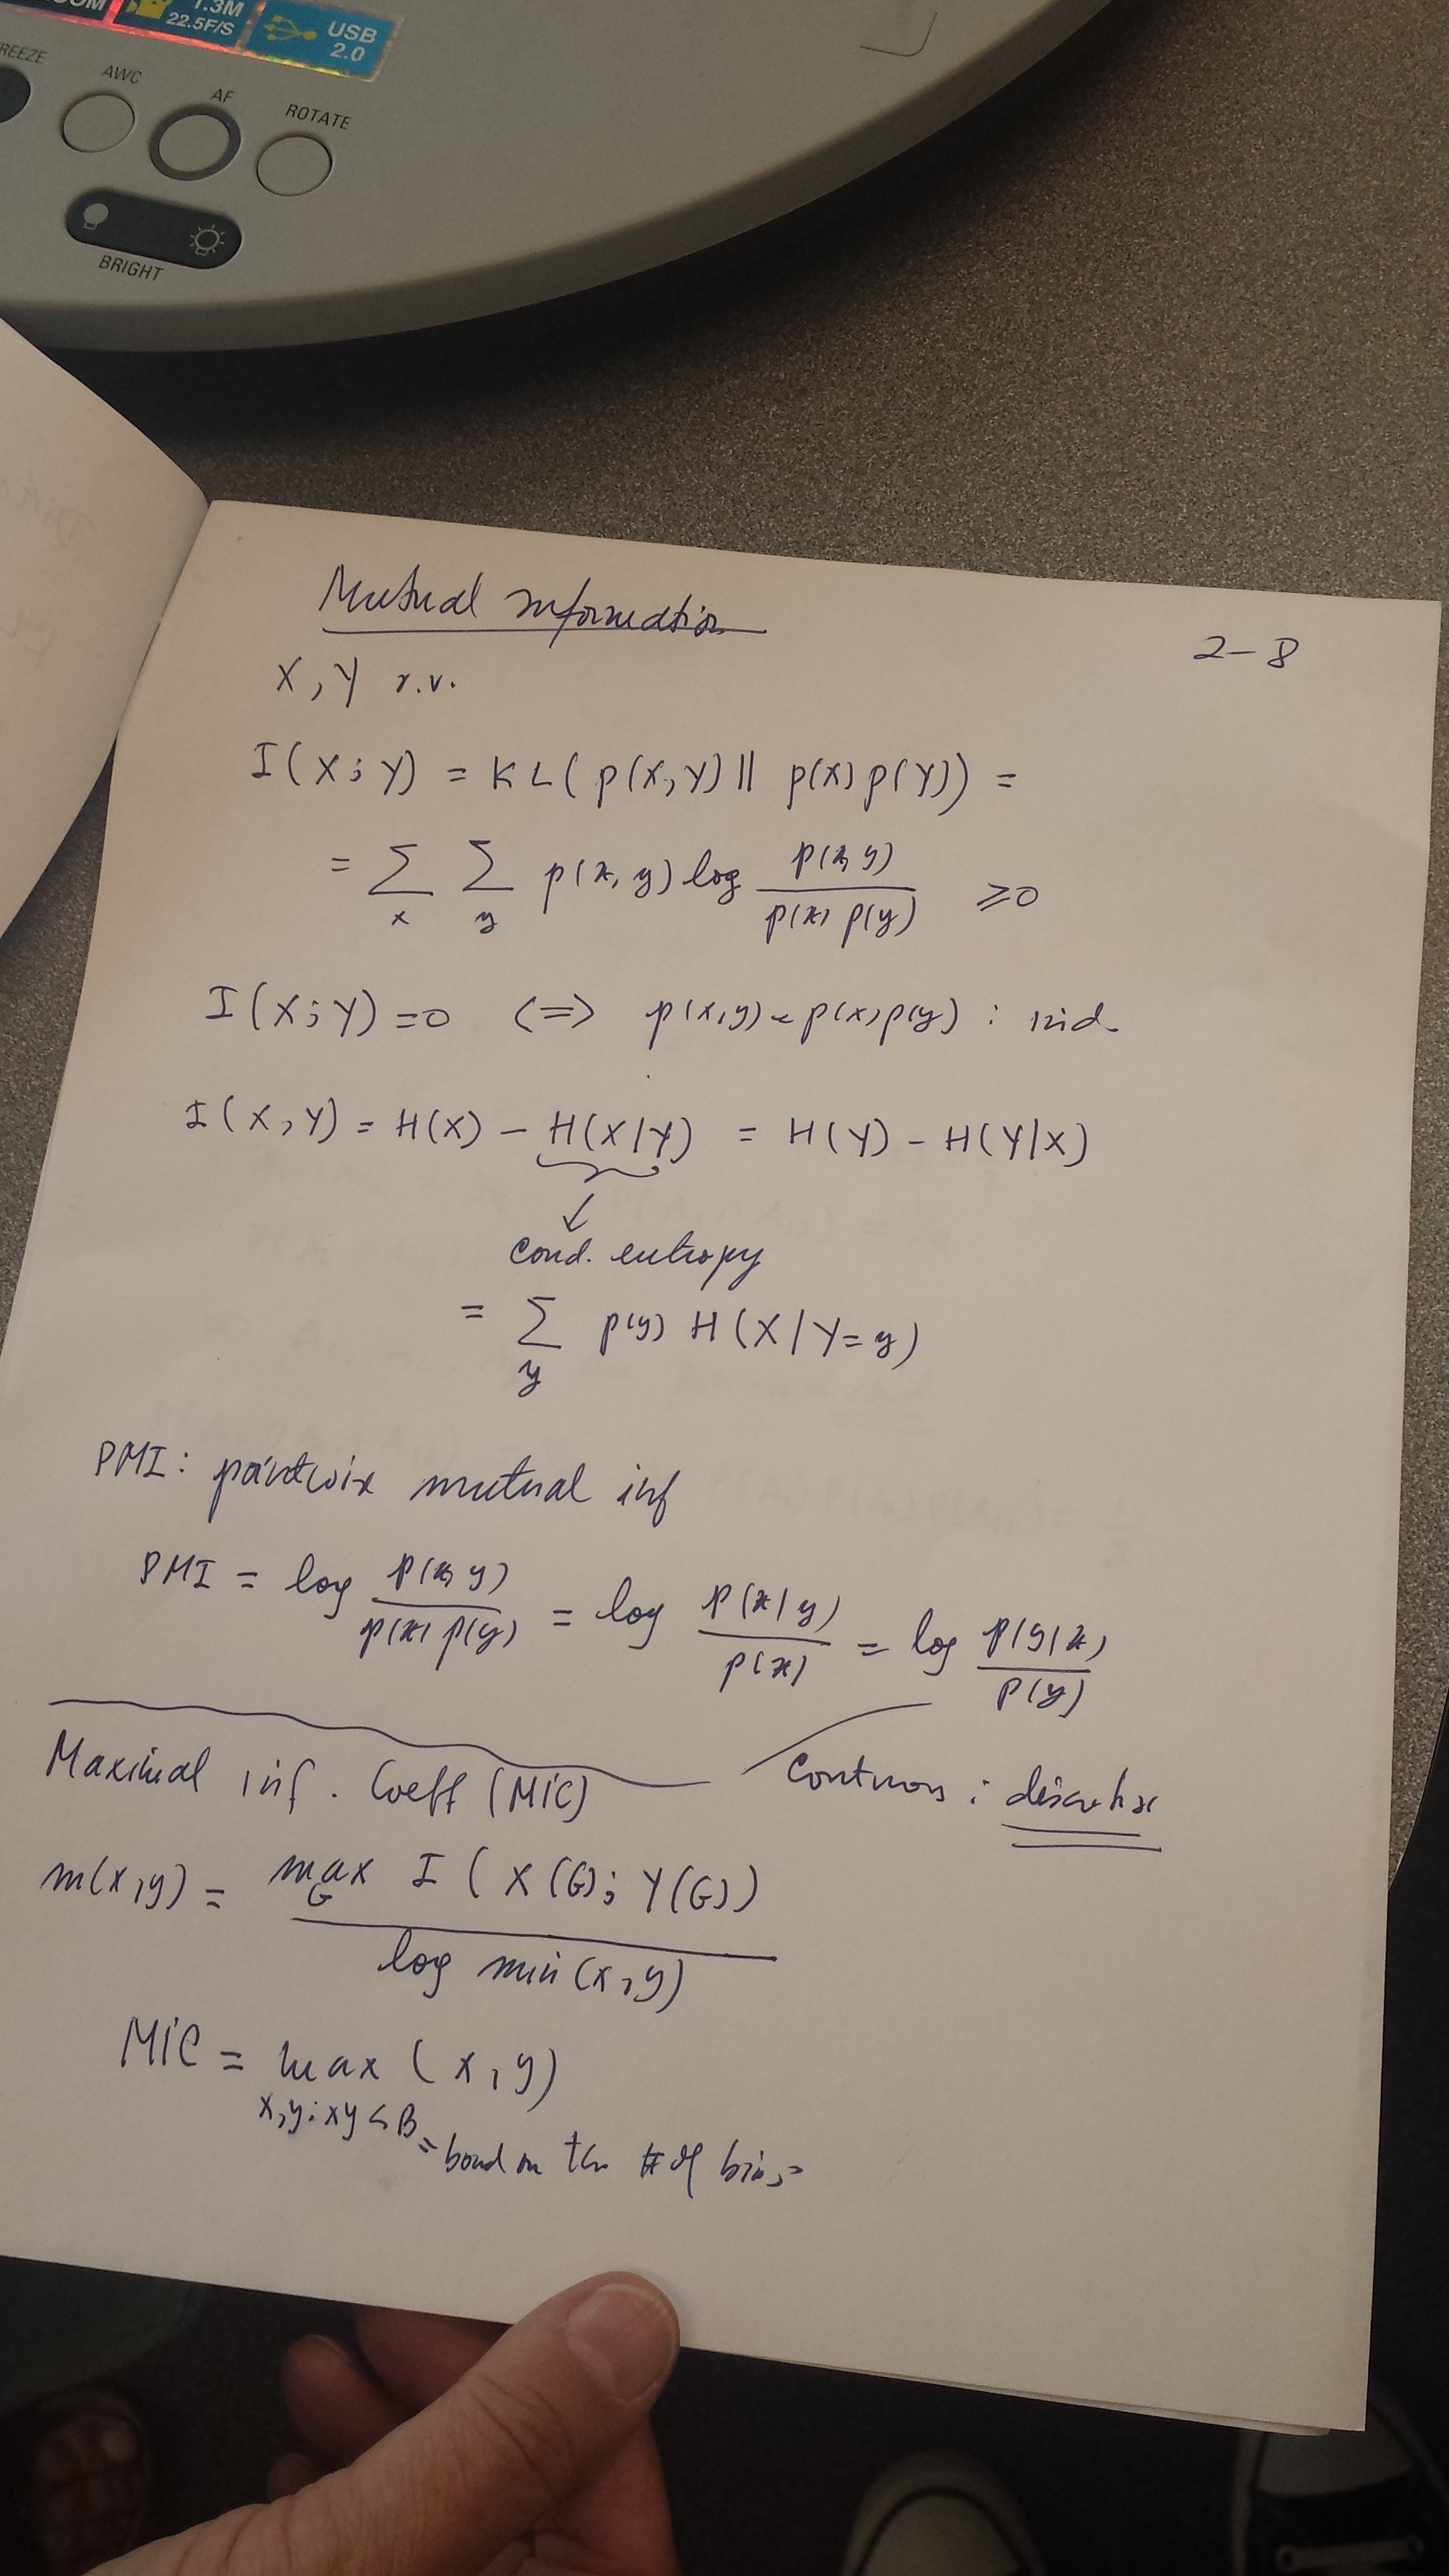 1.3M
22.5F/S
USB
2.0
AWC
AF
ROTATE
BRIGHT
Mutual information
2-8
X, Y r.v.
I(X; Y) = KL(p(X,Y) || p(X) p(Y)) =
= Σ_x Σ_y p(x,y) log p(x,y) / p(x) p(y) ≥ 0
I(X;Y) = 0 <=> p(x,y) = p(x) p(y) : ind.
I(X,Y) = H(X) - H(X|Y) = H(Y) - H(Y|X)
↓
cond. entropy
= Σ_y p(y) H(X|Y=y)
PMI: mutual inf
PMI = log p(x,y) / p(x) p(y) = log p(x|y) / p(x) = log p(y|x) / p(y)
Maximal inf. Coeff (MIC)
m(x,y) = max_G I(X(G); Y(G)) / log min(x,y)
MIC = max (x,y)
x,y: xy < B = on the # of bins